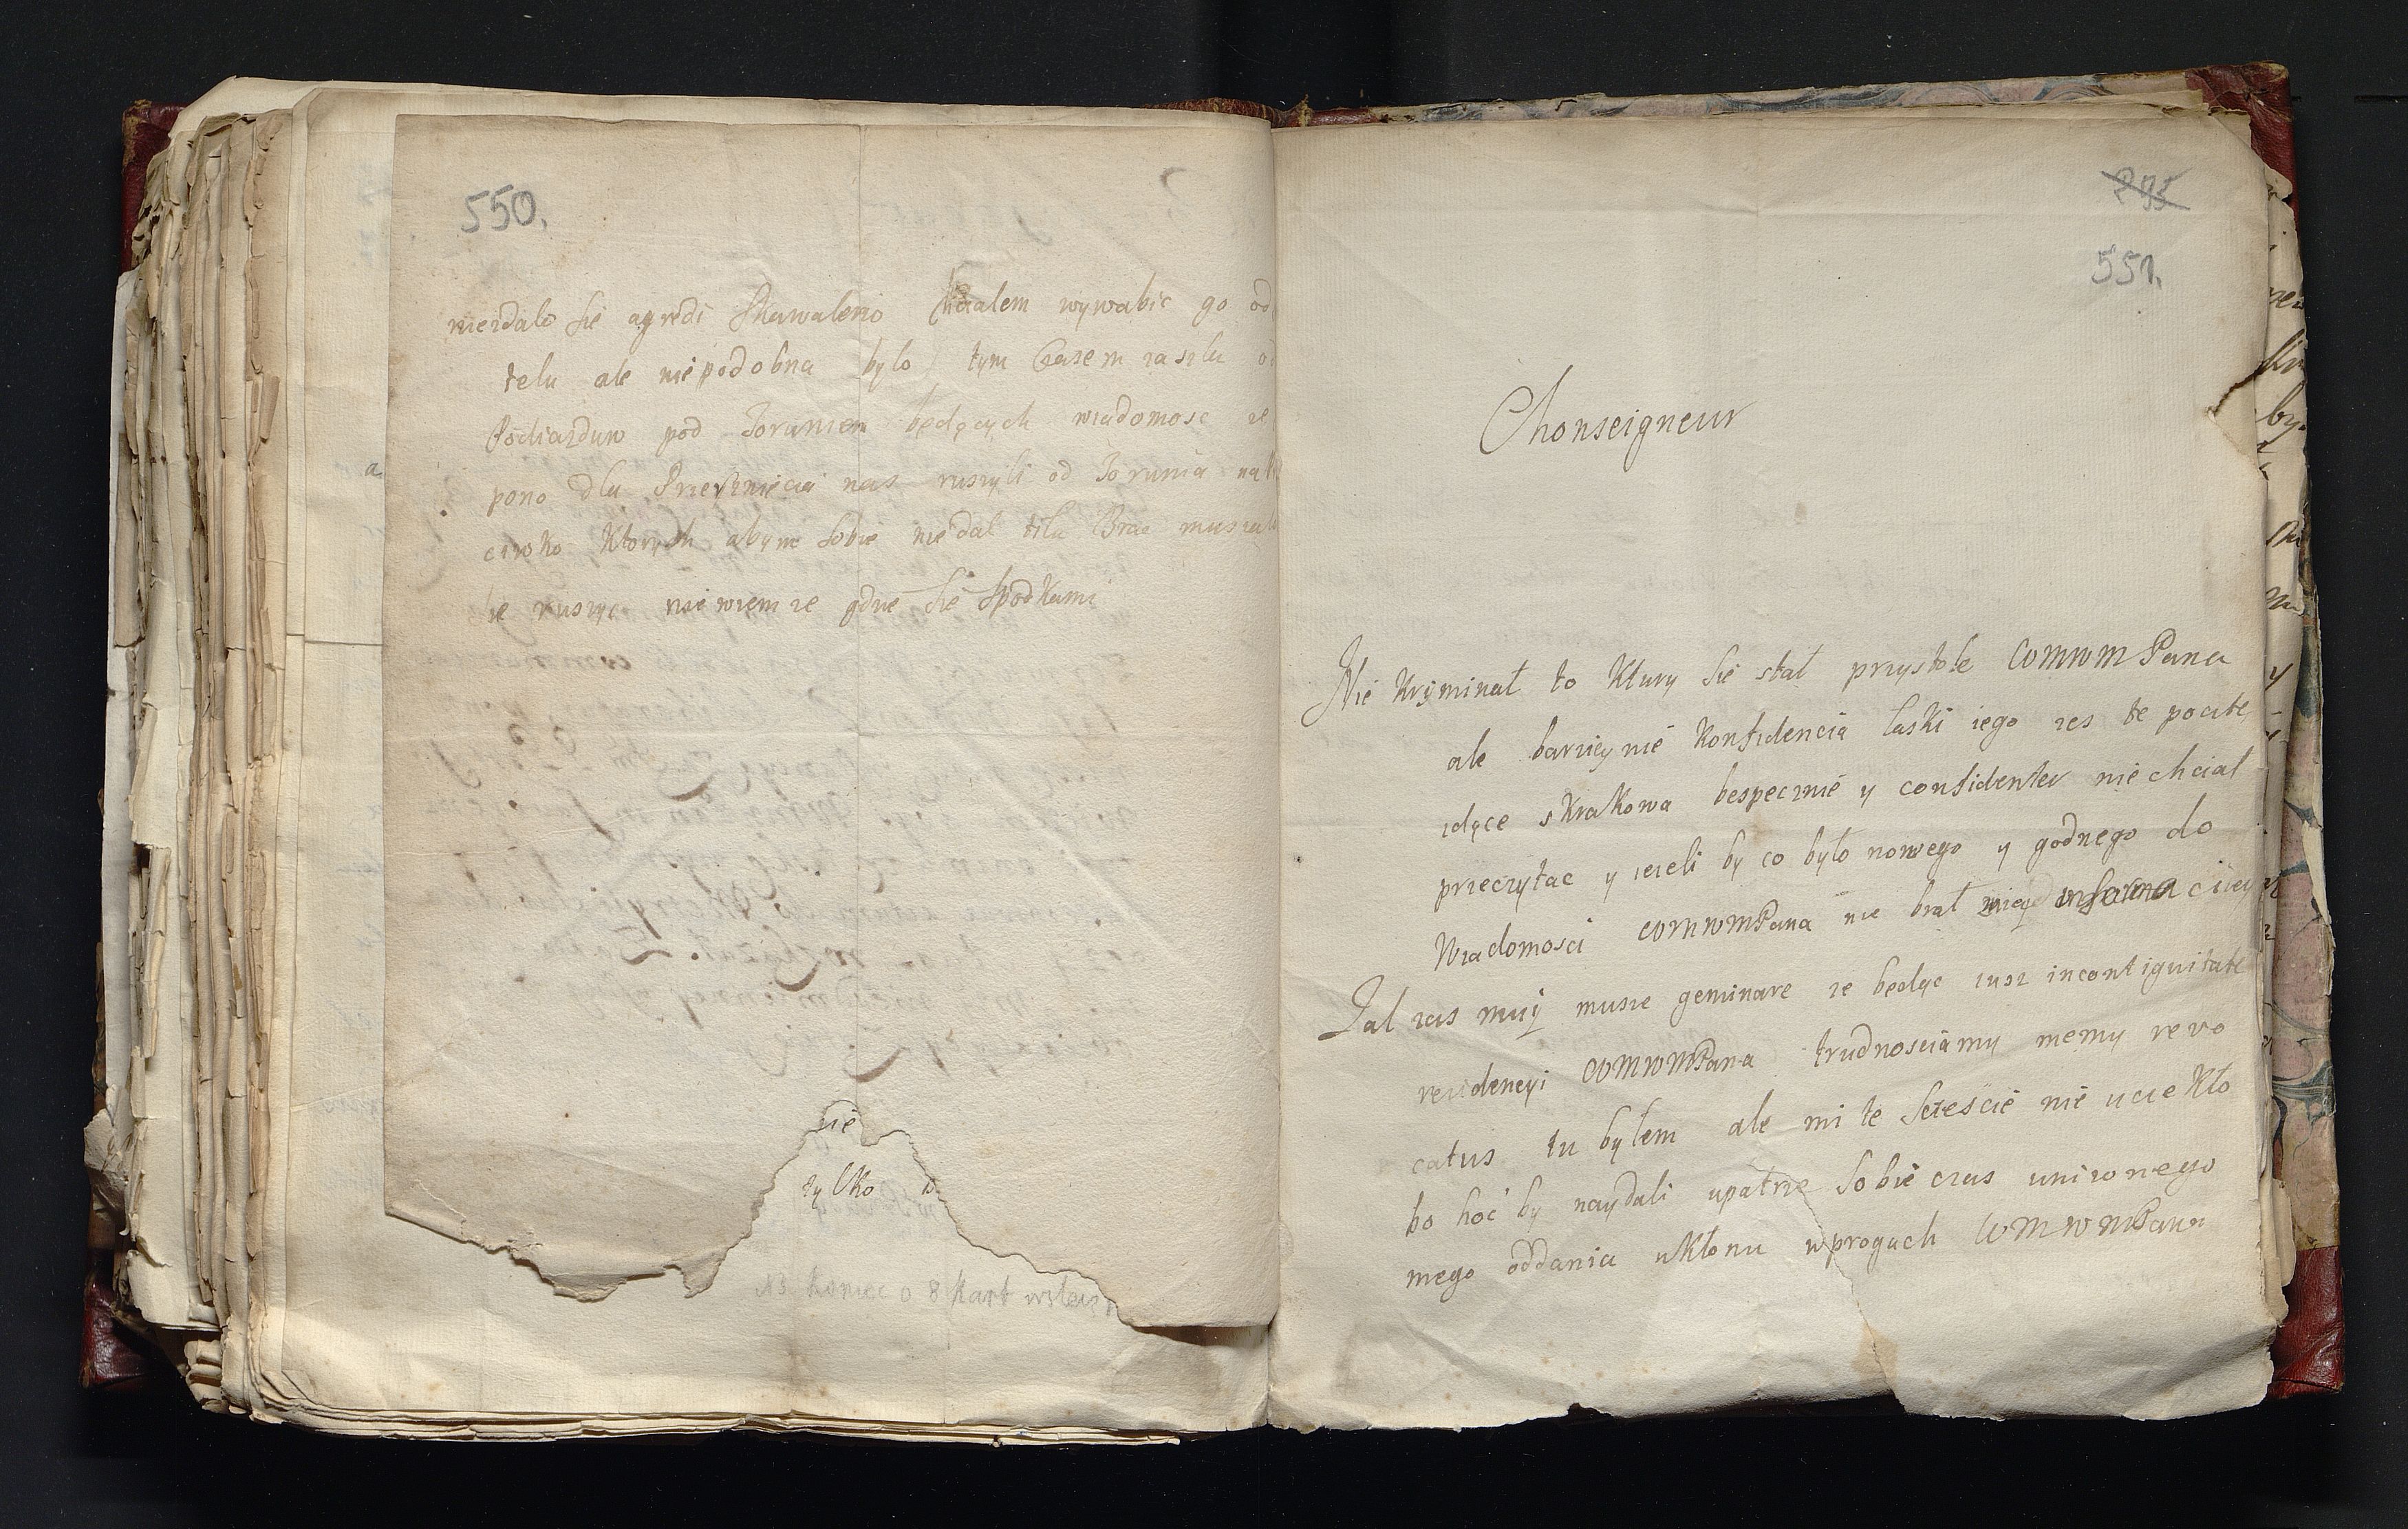 550.
niezdalo sie agredi Skawaleno Chcialem wywabic go od
telu ale niepodobna bylo tym Czasem zaszla
Podiazduw pod Toruniem będących wiadomosc ze
pono dla Przerznięcia nas ruszyli od Torunia na
ciwko Ktorych abym sobie niedal tilu Brac musial
ie ruszyc niewiem ze gdzie sie spodkami
nie
tylko
N3 koniec o 8 kart wstecz
295
551.
Monseigneur
Nie Kryminał to Ktury sie stał przystole WMWMPana
ale barziey nie Konfidencia laski iego zes te poczte
idące sKraKowa bespecznie y confidenter nie chciał
przeczytac y iezeli by co było nowego y godnego do
Wiadomosci WMWMPana nie brał
Zal zas muy musze geminare ze będąc iusz incontiguitate
rezidencyi WMWMPana trudnosciamy memy revo
catus tu byłem ale mi te sczescie nie ucieKło
bo hoc by naydali upatrze sobie czas unizonego
mego oddania uKłonu wprogach WMWMPana